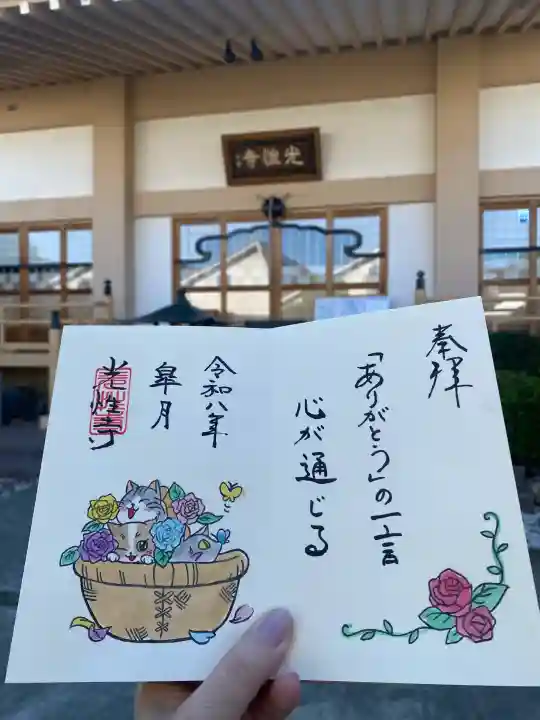 光性寺
奉拝
「ありがとう」の一言
心が通じる
令和八年
皐月
光性寺